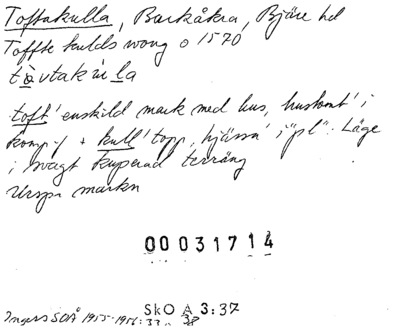 Toftakulla, Barkåkra, Bjäre hd
Toffte kulds wong o 1570
tòvtakùla
toft 'enskild mark med hus, hustomt' i
komp.f + kull 'topp, hjässa' i "pl". Läge
i svagt kuperad terräng
Urspr markn
00031714
SkO A 3:37
Ingers SOÅ 1955-1956:33 o 38